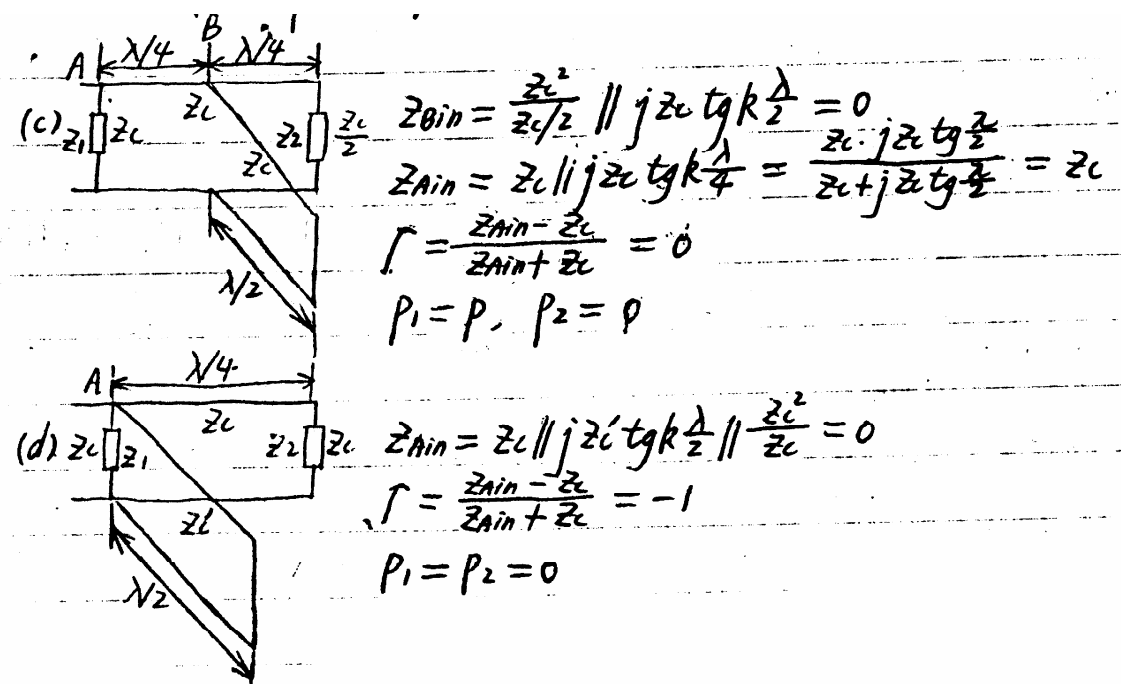 B
A λ/4 λ/4
(c) Z₁ Zc Zc Zc Z₂ Zc/2
λ/2
Z_Bin = Zc²/(Zc/2) ∥ jZc tg k λ/2 = 0
Z_Ain = Zc ∥ jZc tg k λ/4 = (Zc · jZc tg π/2)/(Zc + jZc tg π/2) = Zc
Γ = (Z_Ain − Zc)/(Z_Ain + Zc) = 0
P₁ = P, P₂ = 0
A λ/4
(d) Zc Z₁ Zc Z₂ Zc
Zc′
λ/2
Z_Ain = Zc ∥ jZc′ tg k λ/2 ∥ Zc²/Zc = 0
Γ = (Z_Ain − Zc)/(Z_Ain + Zc) = −1
P₁ = P₂ = 0